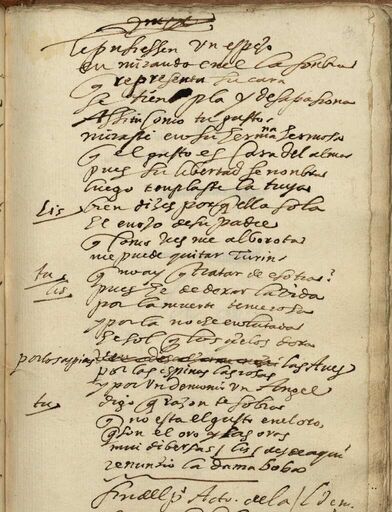 le pusiessen un espejo
en mirando en el la sonbra
q representa su cara
se tienpla y desapasiona
assi como tu gusto
miraste en su hermana hermosa
q el gusto es cara del alma
pues su libertad se nonbra
luego templaste la tuya
Lis bien dizes porq ella sola
el enojo de su padre
q como ves me alborota
me puede quitar Turin
tu q no ay q tratar de esotra?
lis pues he de dexar la vida
por la muerte temerosa
y por la noche enlutada
el sol q los cielos dora
por los aspides las aves
por las espinas las rosas
y por un demonio un Angel
tu digo q razon te sobra
q no esta el gusto en el oro
q son el oro y las oras
mui diversas / lis / desde aqui
renunzio la dama boba
fin del p° Acto de la